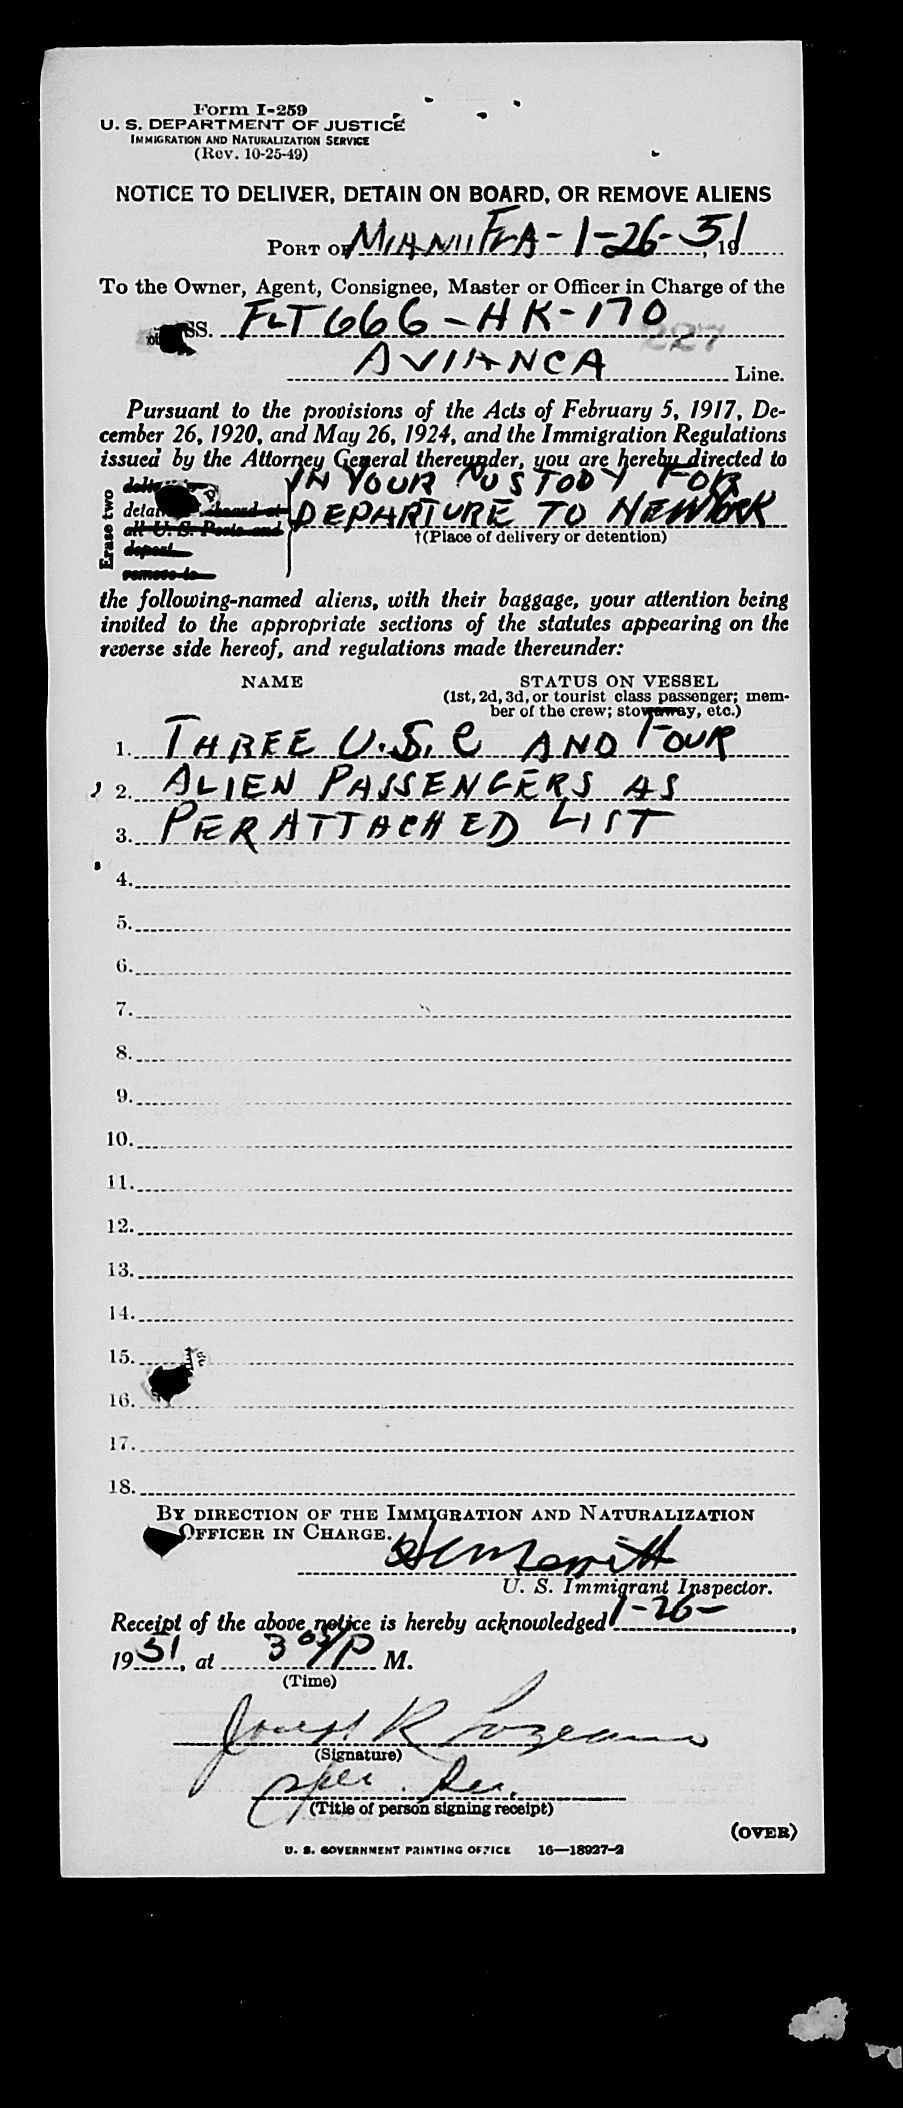 Form I-259
U. S. DEPARTMENT OF JUSTICE
IMMIGRATION AND NATURALIZATION SERVICE
(Rev. 10-25-49)
NOTICE TO DELIVER, DETAIN ON BOARD, OR REMOVE ALIENS
PORT OF MIAMI FLA - 1-26-51, 19
To the Owner, Agent, Consignee, Master or Officer in Charge of the
SS. FLT 666 - HK-170
227
AVIANCA Line.
Pursuant to the provisions of the Acts of February 5, 1917, De-
cember 26, 1920, and May 26, 1924, and the Immigration Regulations
issued by the Attorney General thereunder, you are hereby directed to
Erase two
detain
all U. S. Ports and
deport
remove to
IN YOUR CUSTODY FOR
DEPARTURE TO NEW YORK
†(Place of delivery or detention)
the following-named aliens, with their baggage, your attention being
invited to the appropriate sections of the statutes appearing on the
reverse side hereof, and regulations made thereunder:
NAME STATUS ON VESSEL
(1st, 2d, 3d, or tourist class passenger; mem-
ber of the crew; stowaway, etc.)
1. THREE U.S. C AND FOUR
2. ALIEN PASSENGERS AS
3. PER ATTACHED LIST
4.
5.
6.
7.
8.
9.
10.
11.
12.
13.
14.
15.
16.
17.
18.
BY DIRECTION OF THE IMMIGRATION AND NATURALIZATION
OFFICER IN CHARGE.
U. S. Immigrant Inspector.
Receipt of the above notice is hereby acknowledged 1-26-,
1951, at 3 05/P M.
(Time)
Joseph R
(Signature)
(Title of person signing receipt)
(OVER)
U. S. GOVERNMENT PRINTING OFFICE 16—18927-2